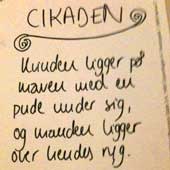 CIKADEN
Kvinden ligger på
maven med en
pude under sig,
og manden ligger
over hendes ryg.